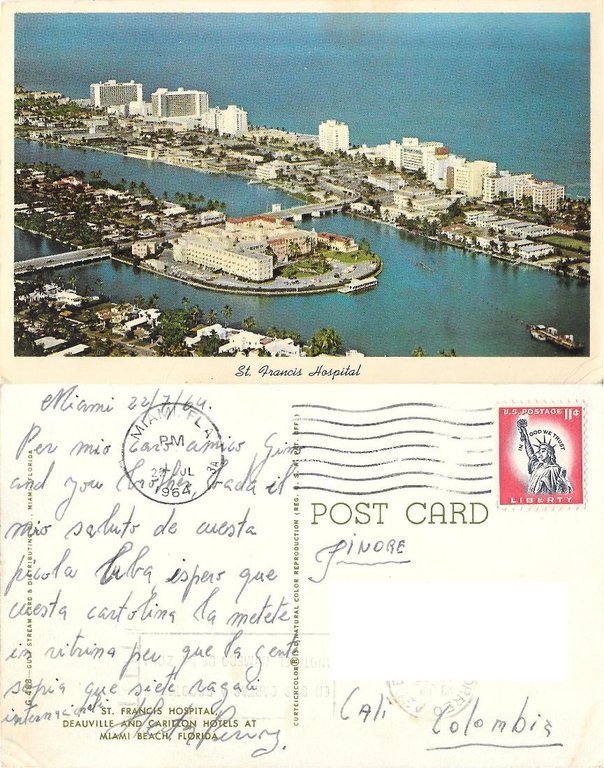 St. Francis Hospital
Miami 22/7/64.
Per mio caro amico, Gim
and you brother bada il
mio saluto de cuesta
picola Cuba ispero que
cuesta cartolina la metete
in vitrina per que la gente
sapia que siete ragazi
internazionali
MIAMI, FLA
PM
JUL
1964
U.S. POSTAGE 11¢
IN GOD WE TRUST
LIBERTY
POST CARD
SINORE
Cali Colombia
ST. FRANCIS HOSPITAL
DEAUVILLE AND CARILLON HOTELS AT
MIAMI BEACH, FLORIDA
GULF STREAM CARD & DISTRIBUTING MIAMI, FLORIDA
CURTEICHCOLOR® 3-D NATURAL COLOR REPRODUCTION (REG. U.S.A. PAT. OFF.)